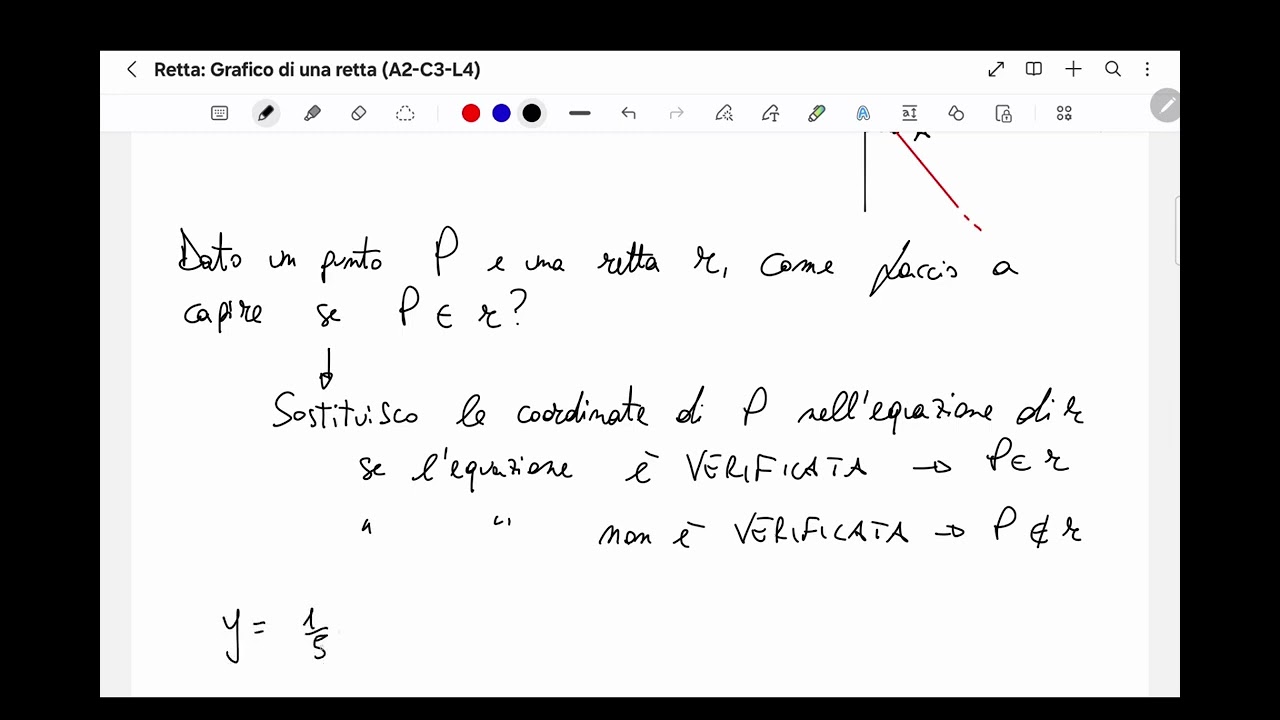 Retta: Grafico di una retta (A2-C3-L4)
A
Dato un punto P e una retta r, come faccio a
capire se P ∈ r?
Sostituisco le coordinate di P nell'equazione di r
se l'equazione è VERIFICATA → P ∈ r
" " non è VERIFICATA → P ∉ r
y = 1/5